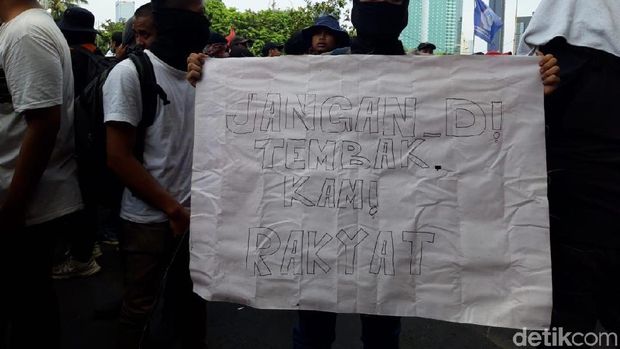 JANGAN_D!
TEMBAK.
KAM!
RAKYAT
detikcom